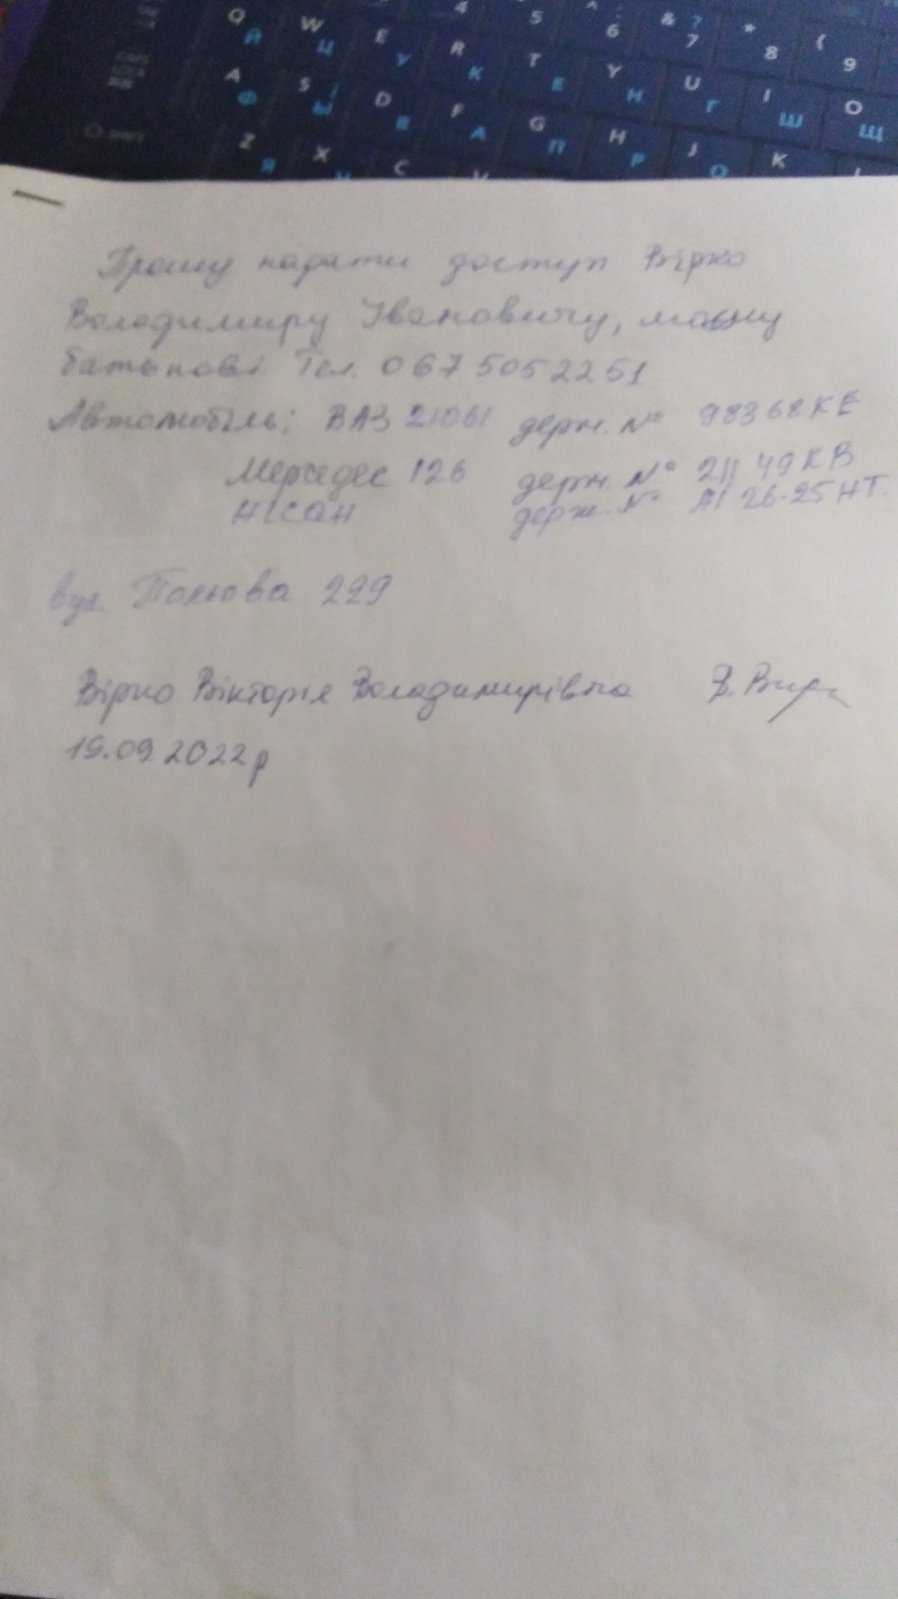 Q Й W Ц E У 4 R К 5 T Е 6 Y Н & 7 ? U Г * 8 I Ш ( 9 O Щ
A Ф S Ы І D В F А G П H Р J О K
Z Я X C
Прошу надати доступ Вірко
Володимиру Івановичу, моєму
батькові Тел. 067 5052251
Автомобіль: ВАЗ 21061 держ. № 98368КЕ
Мерседес 126 держ. № 211 49 КВ
Нісан держ. № АІ 26-25 НТ.
вул. Польова 229
Вірко Вікторія Володимирівна
19.09 2022р